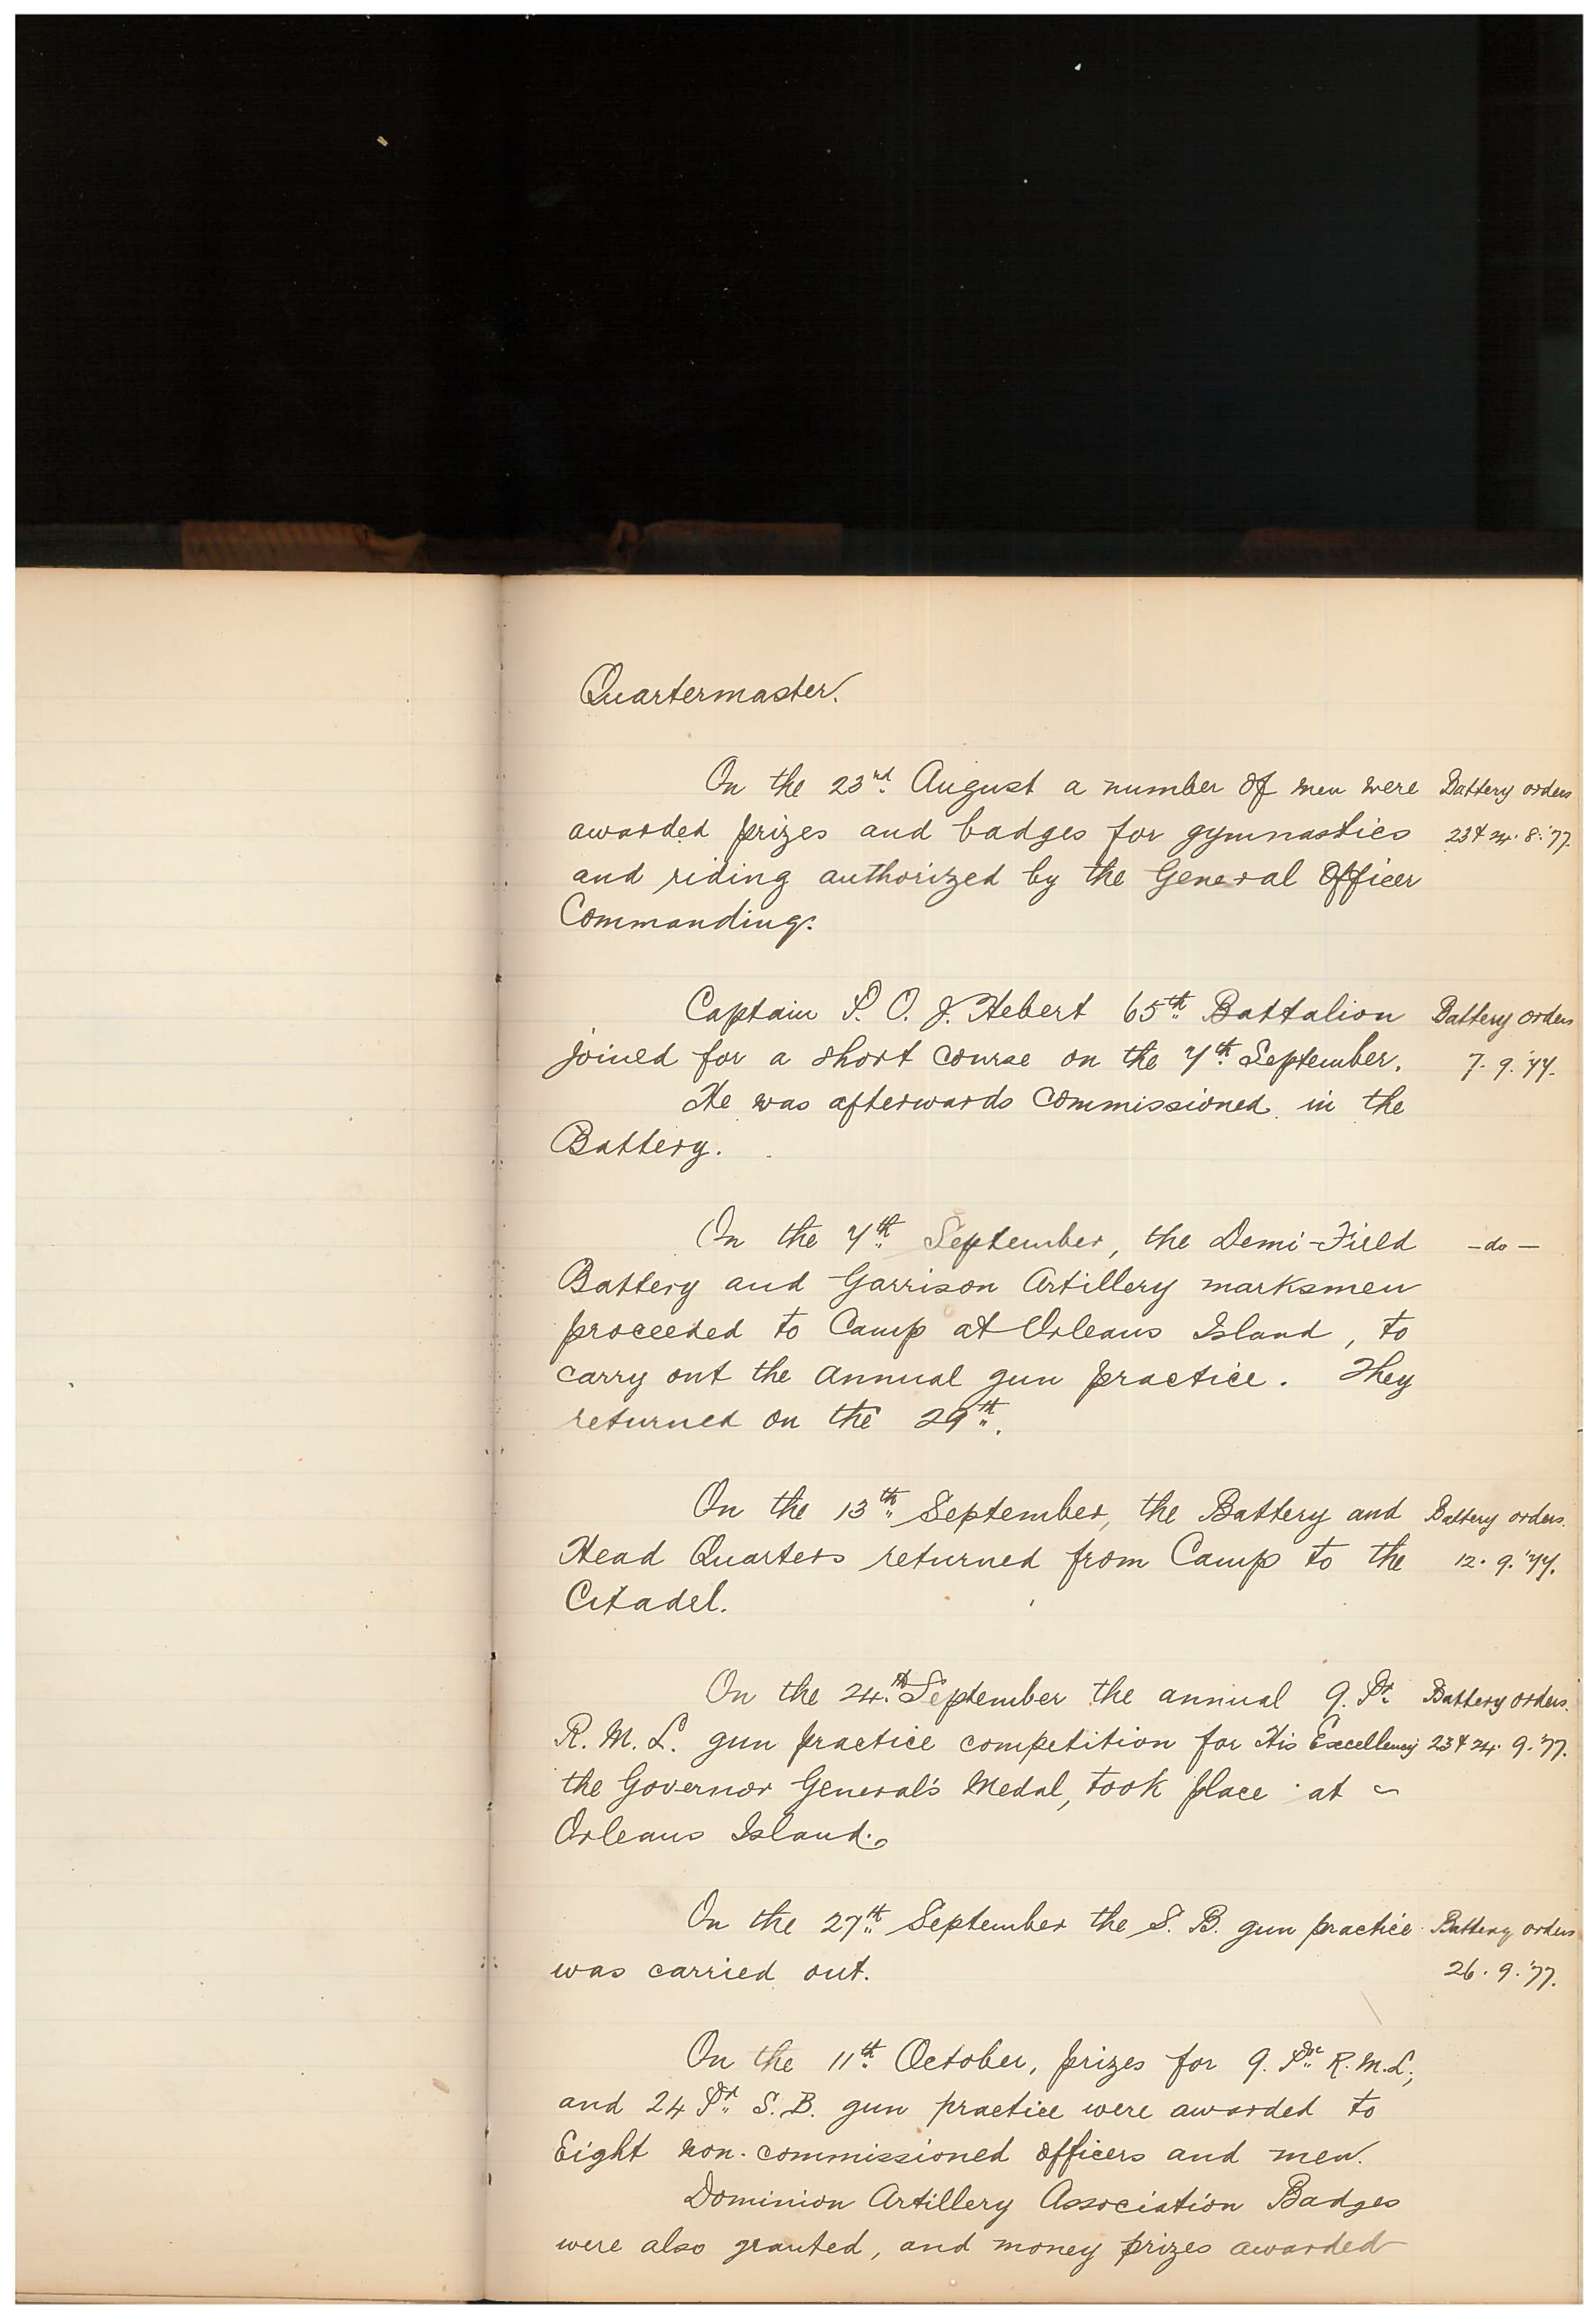 Quartermaster.
On the 23rd August a number of men were Battery orders
awarded prizes and badges for gymnastics 23 & 24. 8. '77.
and riding authorized by the General Officer
Commanding.
Captain P. O. J. Hebert 65th Battalion Battery orders
joined for a short course on the 7th September. 7. 9. '77.
He was afterwards commissioned in the
Battery.
On the 7th September, the Demi-Field -do-
Battery and Garrison Artillery marksmen
proceeded to Camp at Orleans Island, to
carry out the annual gun practice. They
returned on the 29th.
On the 13th September, the Battery and Battery orders.
Head Quarters returned from Camp to the 12. 9. '77.
Citadel.
On the 24th September the annual 9. Pr. Battery orders.
R. M. L. gun practice competition for His Excellency 23 & 24. 9. '77.
the Governor General's Medal, took place at
Orleans Island.
On the 27th September the S. B. gun practice Battery orders
was carried out. 26. 9. '77.
On the 11th October, prizes for 9. Pr. R.M.L,
and 24 Pr. S. B. gun practice were awarded to
Eight non-commissioned officers and men.
Dominion Artillery Association Badges
were also granted, and money prizes awarded